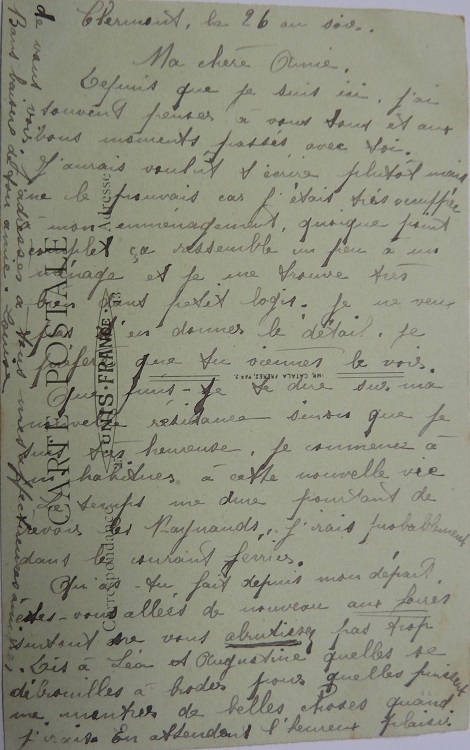 Clermont, le 26 au soir.
Ma chère Amie.
Depuis que je suis ici, j'ai
souvent penser à vous tous et aux
bons moments passés avec toi.
J'aurais voulût t'écrire plutôt mais
ne le pouvais car j'étais très occupée
à mon emménagement, quoique point
complet ça ressemble un peu à un
ménage et je me trouve très
bien dans petit logis. Je ne veux
pas t'en donner le détail. Je
préfère que tu viennes le voir.
Que puis-je te dire sur ma
nouvelle résidance sinon que je
suis très heureuse, je commence à
m'habituer à cette nouvelle vie
le temps me dure pourtant de
revoir les Raynauds, j'irais probablement
dans le courant février.
Qu'as-tu fait depuis mon départ.
êtes-vous allées de nouveau aux foires
surtout ne vous abrutissez pas trop
Dis à Léa et Augustine quelles se
débrouilles à broder pour quelles puissent
me montrer de belles choses quand
j'irais. En attendent l'heureux plaisir
de vous voir. J'adresses à tous mes affectueuses amitiés,
Bons baisers de ton amie. Louise
CARTE POSTALE
UNIS-FRANCE
Correspondance
Adresse
IMP. CATALA FRÈRES, PARIS